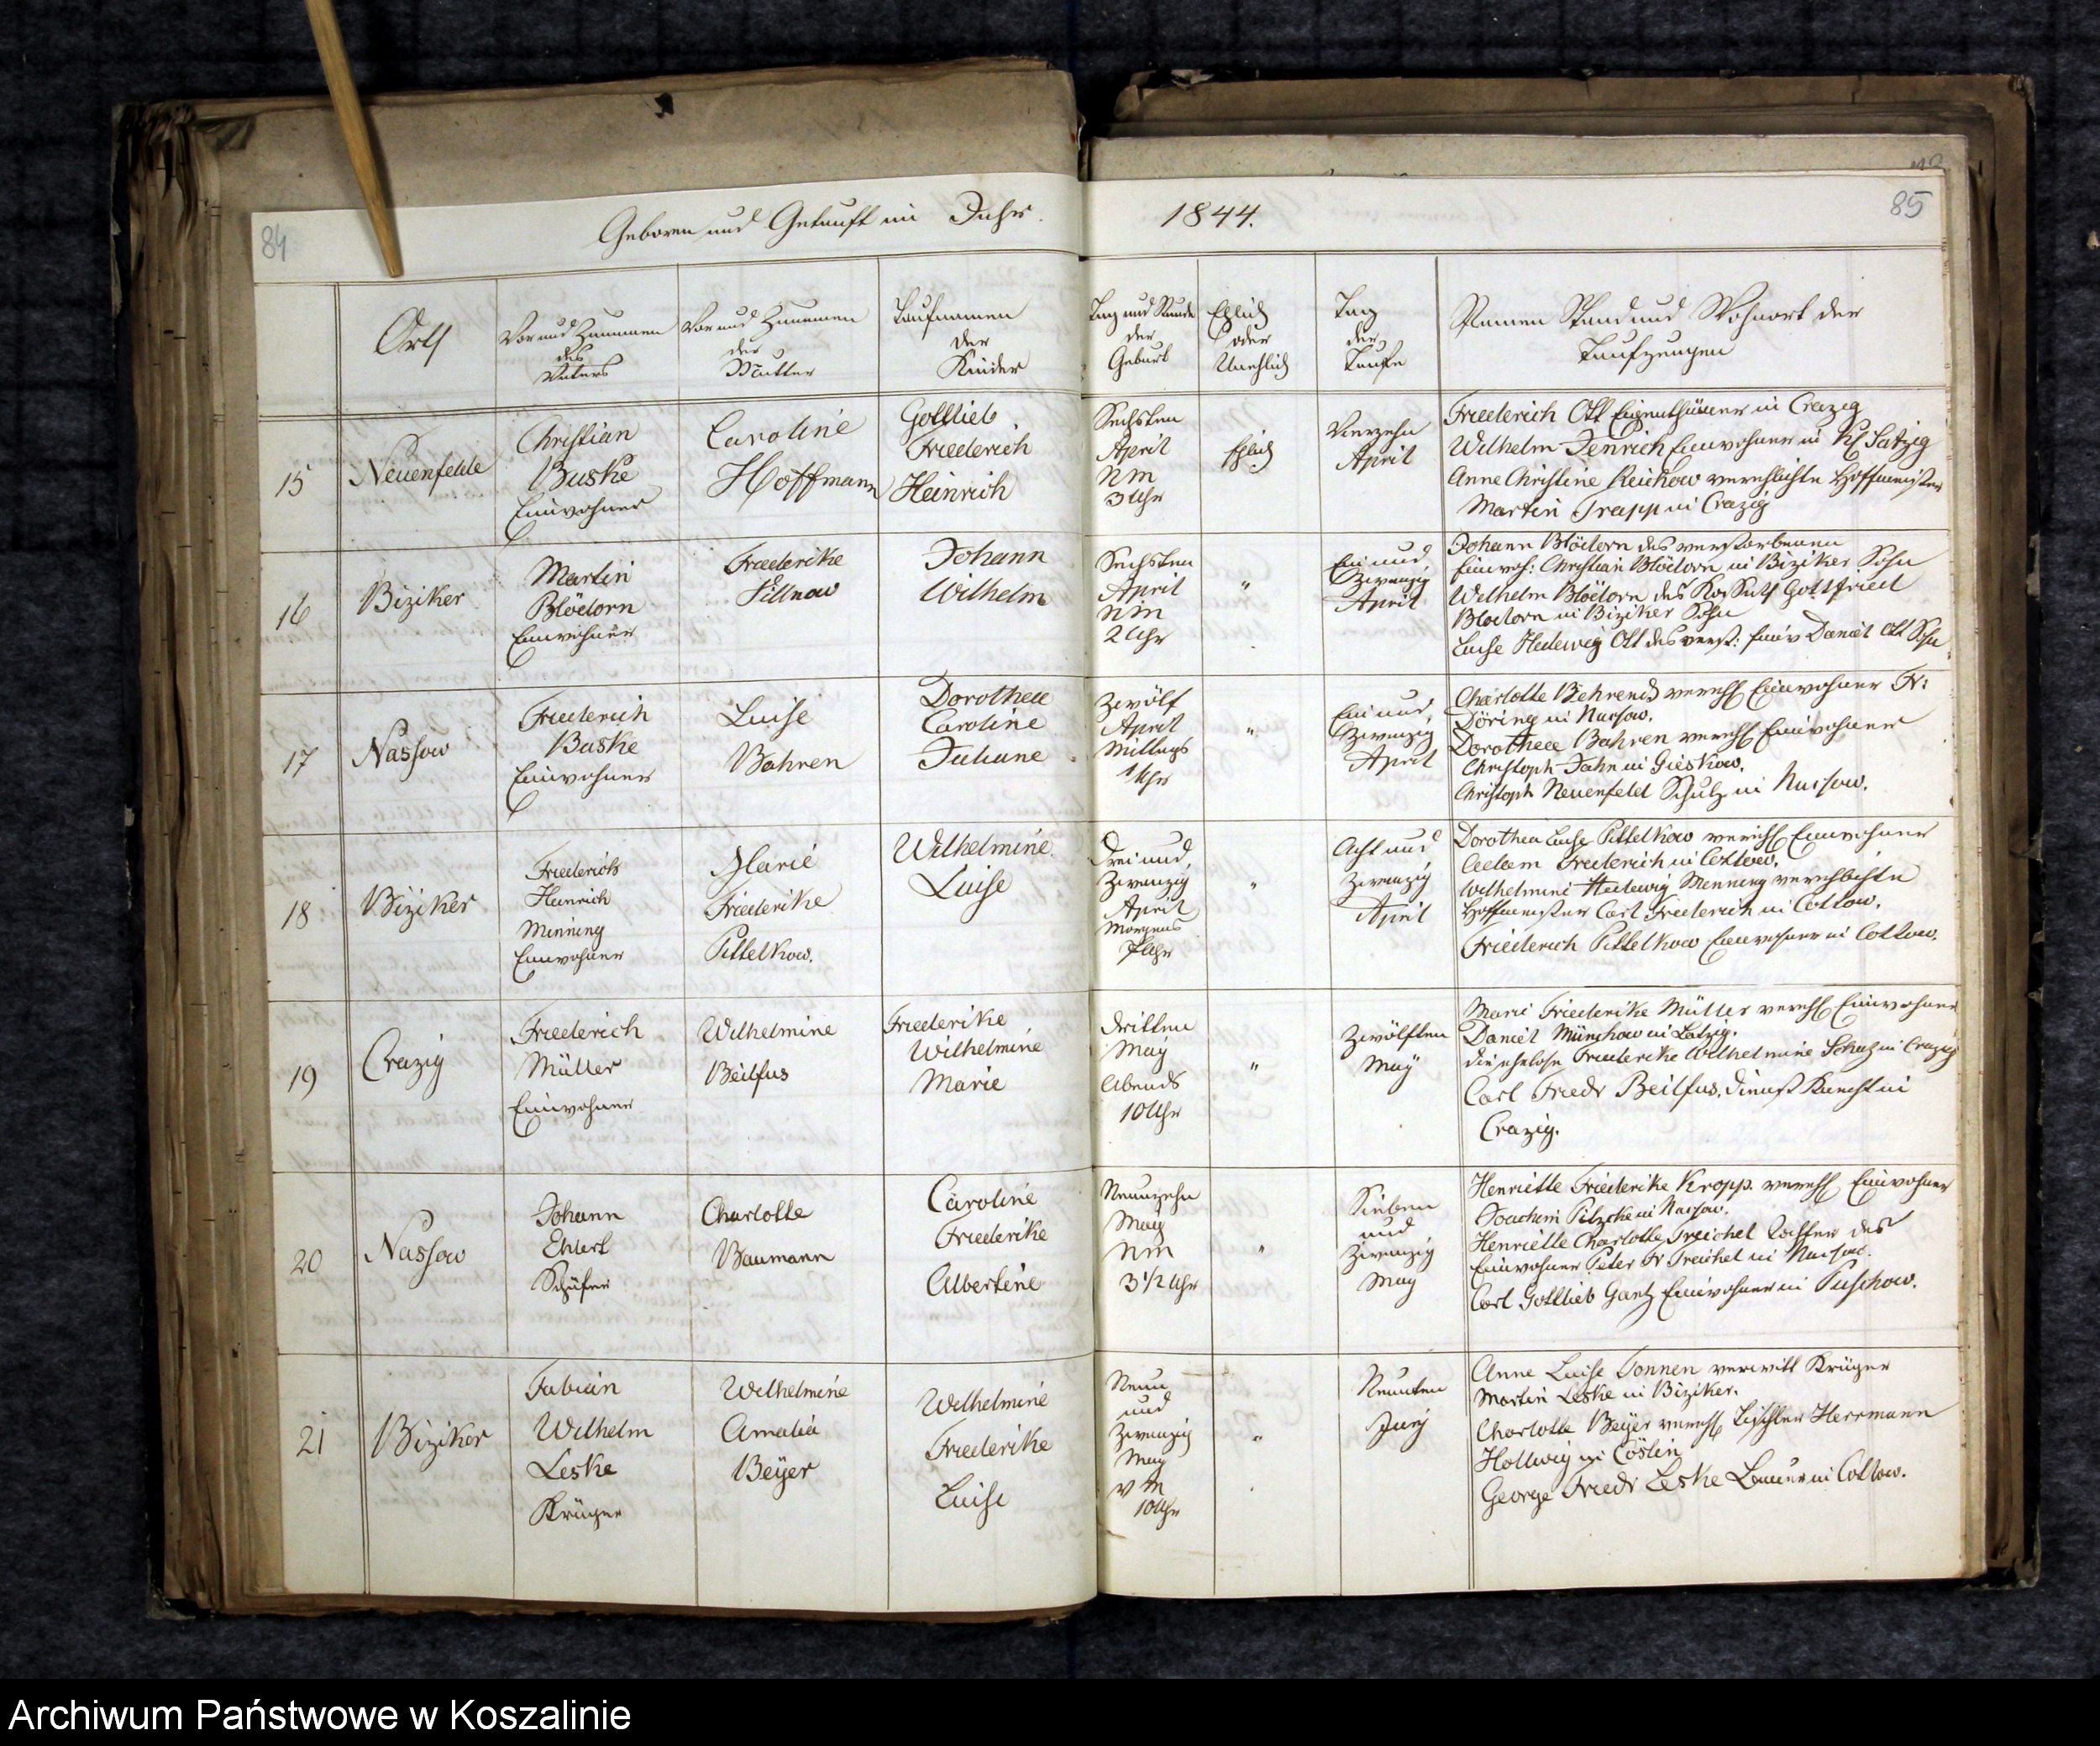 84
Geboren und Getauft im Jahr
1844.
85
Ort
Vor und Zunamen
des
Vaters
Vor und Zunamen
der
Mutter
Taufnamen
der
Kinder
Tag und Stunde
der
Geburt
Ehlich
oder
Unehlich
Tag
der
Taufe
Namen Stand und Wohnort der
Taufzeugen
15
Neuenfelde
Christian
Buske
Einwohner
Caroline
Hoffmann
Gottlieb
Friederich
Heinrich
Sechsten
April
NM
3 Uhr
Ehlich
Vierzehn
April
Friederich Ott Eigenthümer in Crazig
Wilhelm Jenrich Einwohner in Kl Satzig
Anne Christine Reichow verehlichte Hoffmeister
Martin Trapp in Crazig
16
Biziker
Martin
Blödorn
Einwohner
Friederike
Villnow
Johann
Wilhelm
Sechsten
April
NM
2 Uhr
"
Ein und
Zwanzig
April
Johann Blödorn des verstorbenen
Einwoh: Christian Blödorn in Biziker Sohn
Wilhelm Blödorn des Gottfried
Blödorn in Biziker Sohn
Luise Hedewig Ott des verst: Einw Daniel Ott
17
Nassow
Friederich
Buske
Einwohner
Luise
Bahren
Dorothea
Caroline
Juliane
Zwölf
April
Mittags
1 Uhr
"
Ein und
Zwanzig
April
Charlotte Behrend verehl Einwohner Fr:
Döring in Nassow.
Dorothea Bahren verehl Einwohner
Christoph Jahn in Gieskow.
Christoph Neuenfeld Schulz in Nassow.
18
Biziker
Friederich
Heinrich
Minning
Einwohner
Marie
Friederike
Pittelkow.
Wilhelmine
Luise
Drei und
Zwanzig
April
Morgens
7 Uhr
"
Acht und
Zwanzig
April
Dorothea Luise Pittelkow verehl Einwohner
Adam Friederich in Cottow.
Wilhelmine Hedewig Menning verehlichte
Hoffmeister Carl Friederich in Cottow.
Friederich Pittelkow Einwohner in Cottow.
19
Crazig
Friederich
Müller
Einwohner
Wilhelmine
Beilfus
Friederike
Wilhelmine
Marie
Dritten
May
Abends
10 Uhr
"
Zwölften
May
Marie Friederike Müller verehl Einwohner
Daniel Münchow in Latzig.
die ehelose Friederike Wilhelmine Schulz in Crazig
Carl Friedr Beilfus. Dienst Knecht in
Crazig.
20
Nassow
Johann
Ehlert
Schäfer
Charlotte
Baumann
Caroline
Friederike
Albertine
Neunzehn
May
NM
3 1/2 Uhr
"
Sieben
und
Zwanzig
May
Henriette Friederike Kropp. verehl Einwohner
Joachim Pitzcke in Nassow.
Henriette Charlotte Treichel Tochter des
Einwohner Peter Fr Treichel in Nassow.
Carl Gottlieb Gantz Einwohner in Puschow.
21
Biziker
Fabian
Wilhelm
Leske
Krüger
Wilhelmine
Amalia
Beÿer
Wilhelmine
Friederike
Luise
Neun
und
Zwanzig
May
VM
10 Uhr
"
Neunten
Juny
Anne Luise Tonnen verwitt Krüger
Martin Leske in Biziker.
Charlotte Beÿer verehl Tischler Herrmann
Hollwig in Cöslin
George Friedr Leske Bauer in Cottow.
Archiwum Państwowe w Koszalinie